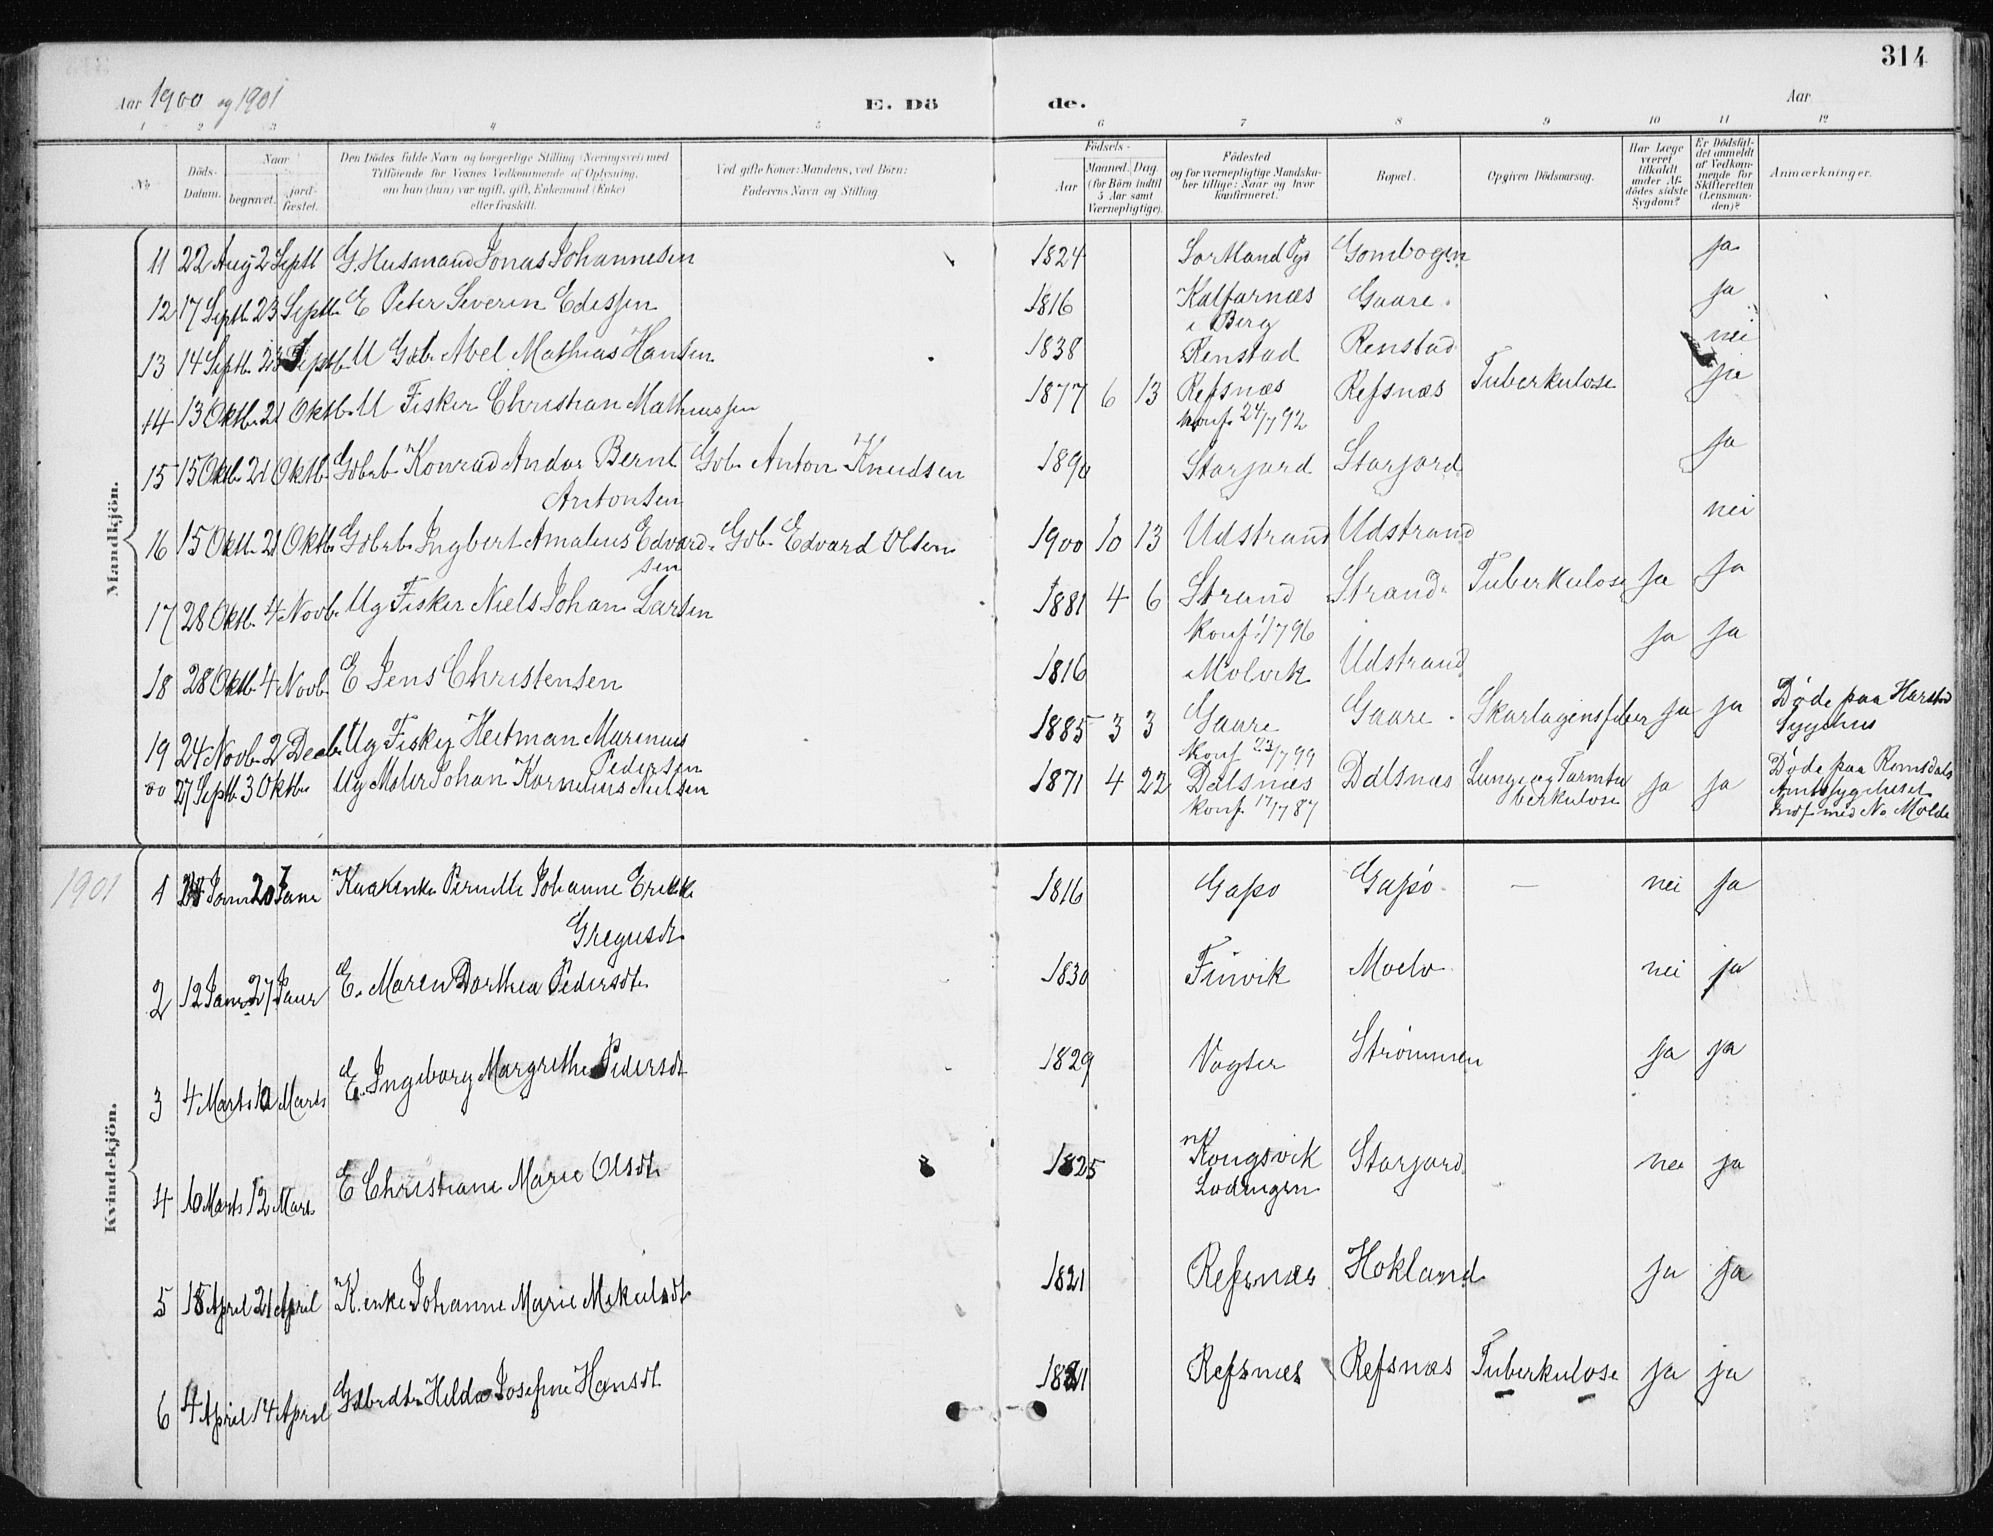 314
Aar 1900 og 1901 E. Dö de. Aar
1 2 3 4 5 6 7 8 9 10 11 12
No. Döds-Datum. Naar begravet. jord-fæstet. Den Dödes fulde Navn og borgerlige Stilling (Næringsvei) med Tilföiende for Voxnes Vedkommende af Oplysning, om han (hun) var ugift, gift, Enkemand (Enke) eller fraskilt. Ved gifte Koner: Mandens, ved Börn: Faderens Navn og Stilling Födsels- Aar Maaned. Dag. (for Börn indtil 5 Aar samt Værnepligtige). Födested og for værnepligtige Mandskaber tillige: Naar og hvor konfirmeret. Bopæl. Opgiven Dödsaarsag. Har Læge været tilkaldt under Afdödes sidste Sygdom? Er Dödsfaldet anmeldt af Vedkommende for Skifteretten (Lensmanden)? Anmærkninger.
Mandkjön.
11 22 Aug 2 Septl G. Husmand Jonas Johannesen 1824 Sortland Pgd Gombogen ja
12 17 Septl. 23 Septl. E Peter Severin Edissen 1816 Kalfarnæs i Berg Gaare. ja
13 14 Septl. 23 Septbr. U Gbr. Abel Mathias Hansen 1838 Renstad Renstad nei
14 13 Oktb. 21 Oktb. U Fisker Christian Mathiassen 1877 6 13 Refsnæs Refsnæs Tuberkulose ja
konf. 24/7 92
15 15 Oktb. 21 Oktb. Gbrb. Konrad Andor Bernt Gb. Anton Knudsen 1890 Storjord Storjord ja
Antonsen
16 15 Oktb. 21 Oktb. Gbrb. Ingbert Amalius Edvard- Gb. Edvard Olsen 1900 10 13 Udstrand Udstrand nei
sen
17 28 Oktb. 4 Novb. Ug Fisker Niels Johan Larsen 1881 4 6 Strand Strand. Tuberkulose ja ja
konf. 1/7 96
18 28 Oktb. 4 Novb. E Jens Christensen 1816 Molvik Udstrand ja ja
19 24 Novb. 2 Decbr Ug Fisker Heitman Marinius Pedersen 1885 3 3 Gaare Gaare. Skarlagensfeber ja ja Døde paa Harstad Sygehus
konf. 23/7 99
20 27 Septl. 3 Oktb. Ug Maler Johan Kornelius Nielsen 1871 4 22 Dalsnæs Dalsnæs Lunge og Tarmtuberkulose ja ja Døde paa Romsdals Amtssygehuset Indf. med No Molde
konf. 17/7 87
1901
Kvindekjön.
1 Janr 20 Janr Kaarenke Pernille Johanne Erikke 1816 Gapø Gapø — nei ja
Gregusdt.
2 12 Janr. 27 Janr E. Maren Dorthea Pedersdt. 1830 Finvik Moelv nei ja
3 4 Marts 10 Marts E. Ingeborg Margrethe Pedersdt 1829 Vogter Strømmen ja ja
4 10 Marts 12 Marts E Christiane Marie Olsdt. 1825 Kongsvik Storjord nei ja
Lødingen
5 15 April 21 April K. enke Johanne Marie Mikalsdt 1821 Refsnæs Hokland ja ja
6 4 April 14 April Gdbrdtr. Hilda Josefine Hansdt 1881 Refsnæs Refsnæs Tuberkulose ja ja